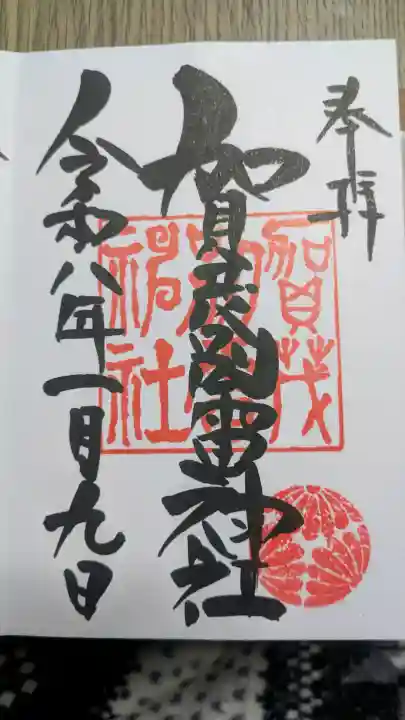 奉拝
賀茂別雷神社
令和八年一月九日
賀茂
神社